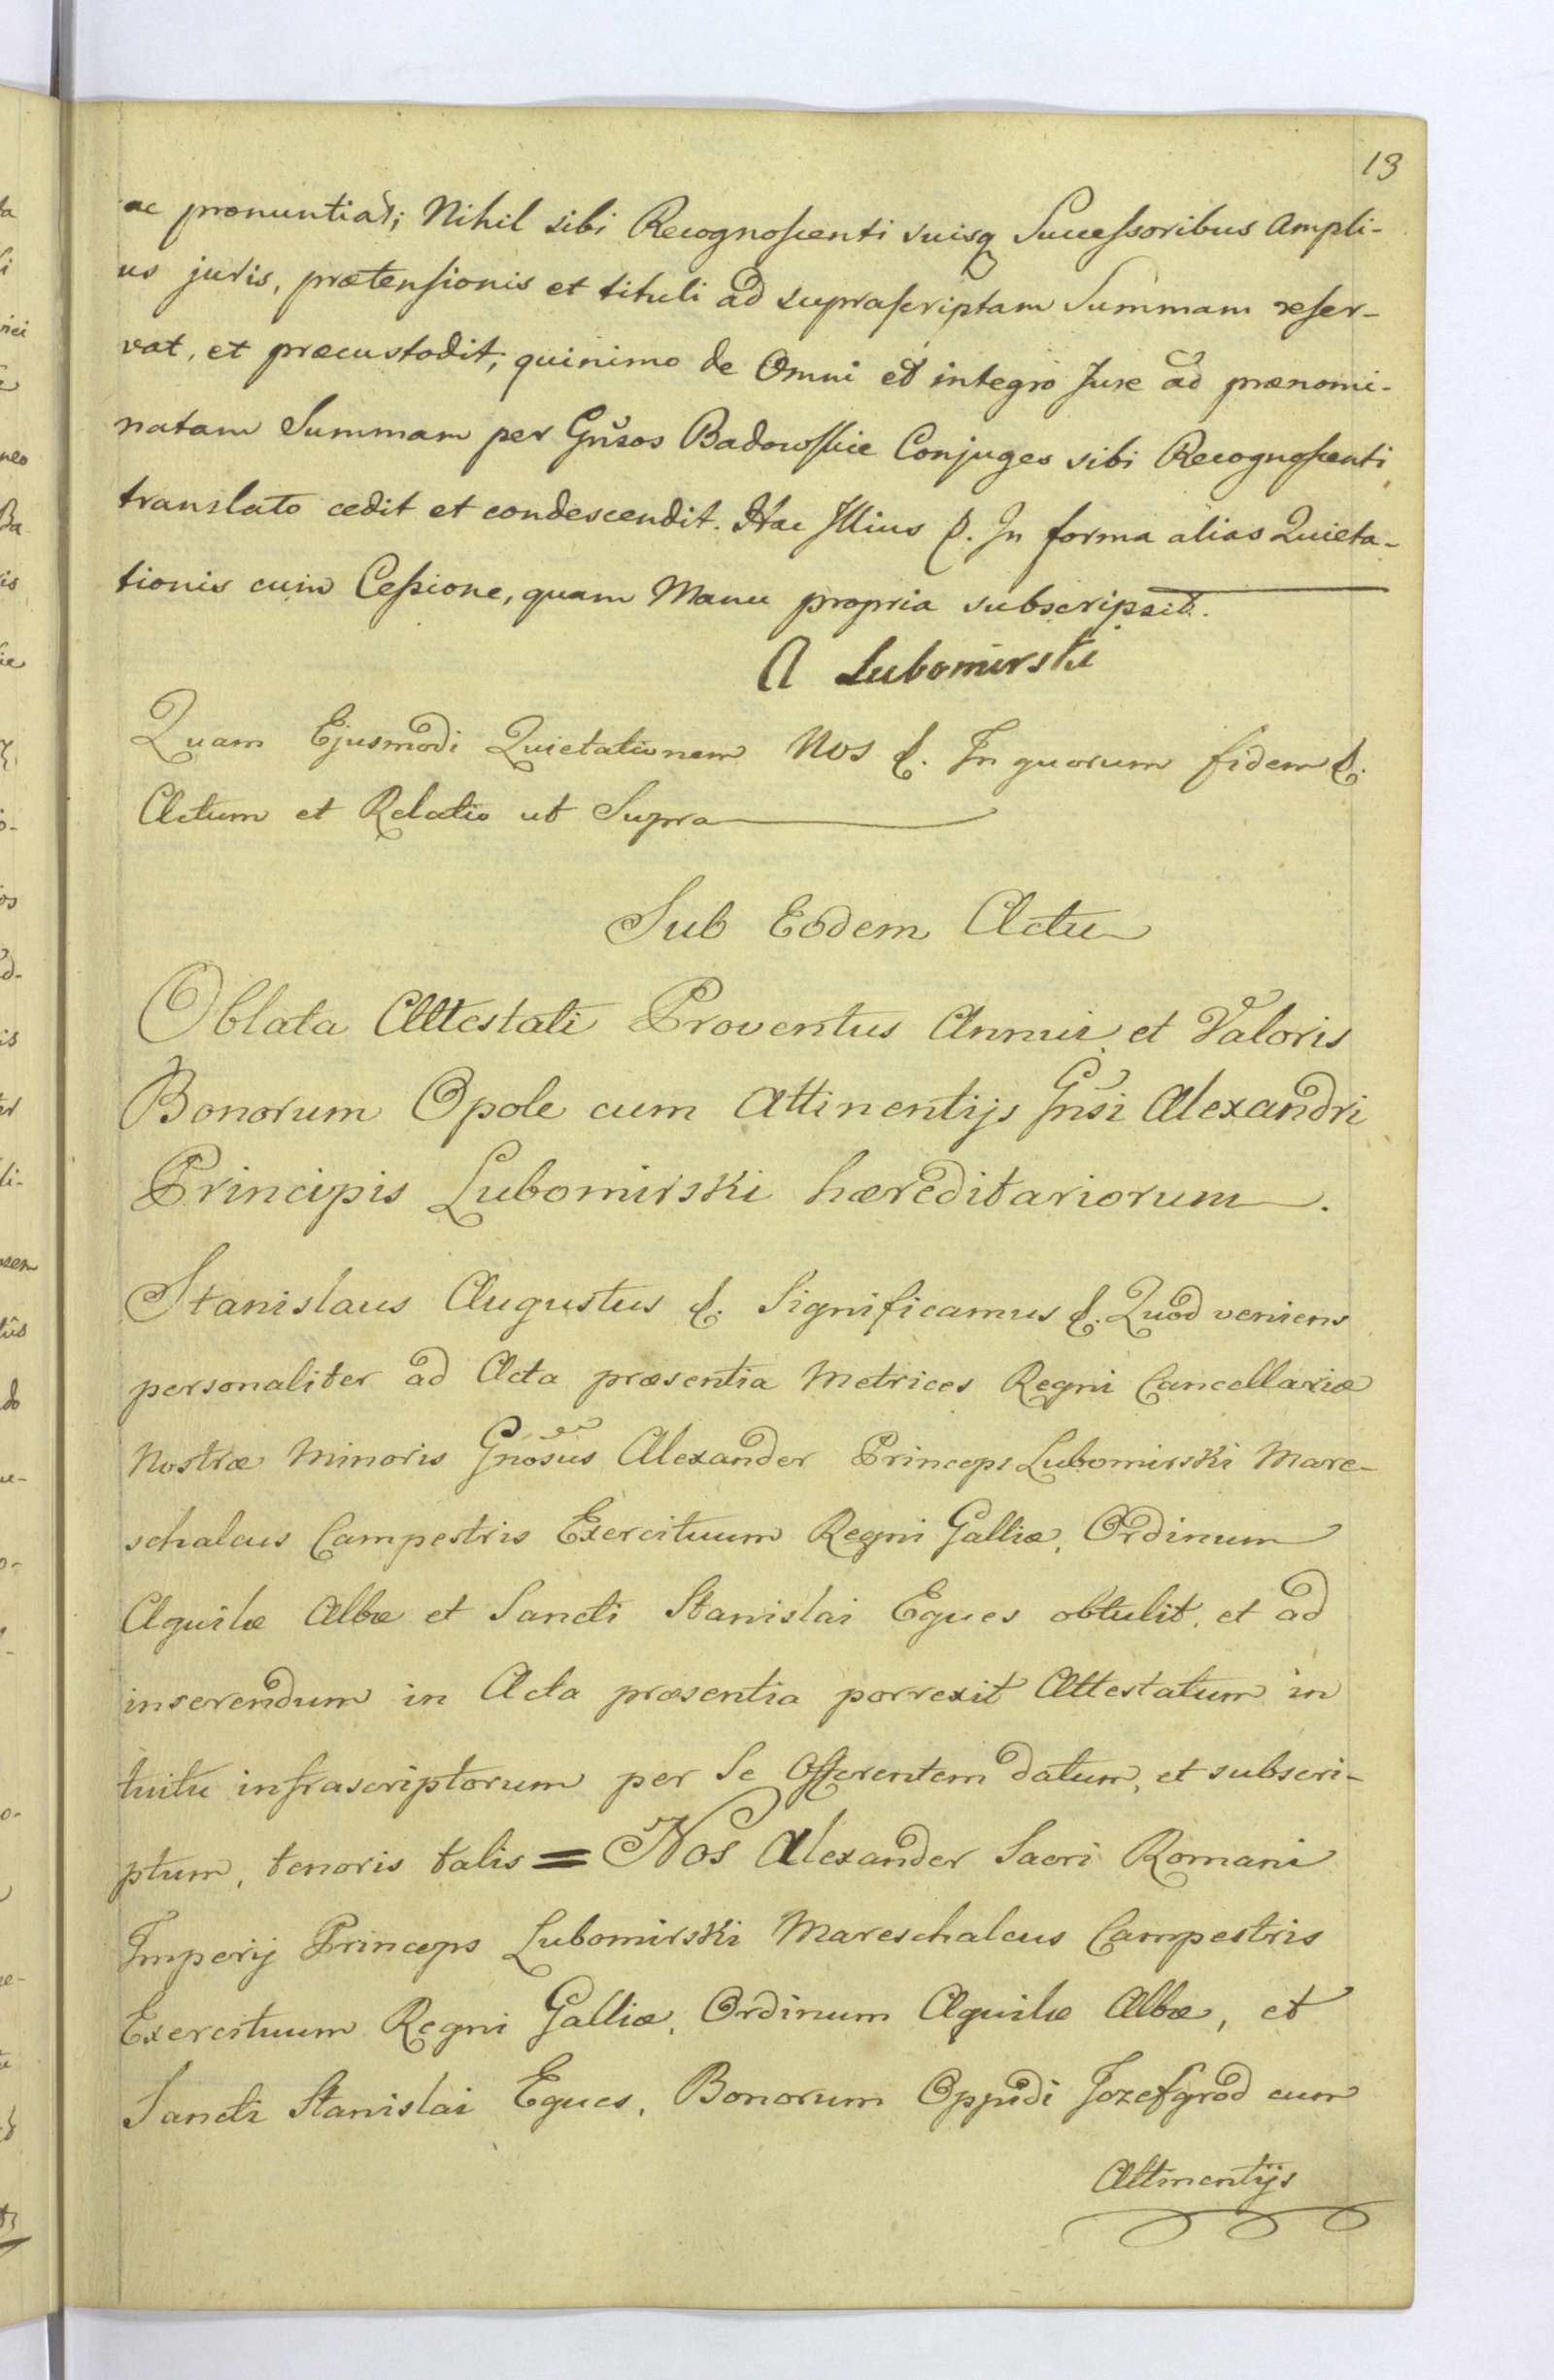 13
ac pronuntiat; Nihil sibi Recognoscenti suisq Successoribus ampli-
us juris, prætensionis et tituli ad suprascriptam Summam reser-
vat, et præcustodit, quinimo de Omni et integro Jure ad prænomi-
natam Summam per Gnsos Badowskie Conjuges sibi Recognoscenti
translato cedit et condescendit. Hac Illius p. In forma alias Quieta-
tionis cum Cessione, quam Manu propria subscripsit.
A Lubomirski
Quam Ejusmodi Quietationem Nos p. In quorum fidem p.
Actum et Relatio ut Supra
Sub Eodem Actu
Oblata Attestati Proventus Annui et Valoris
Bonorum Opole cum Attinentijs Gnsi Alexandri
Principis Lubomirski hæreditariorum.
Stanislaus Augustus p. Significamus p. Quod veniens
personaliter ad Acta præsentia Metrices Regni Cancellariæ
Nostræ Minoris Gnosus Alexander Princeps Lubomirski Mare-
schalcus Campestris Exercituum Regni Galliæ, Ordinum
Aquilæ Albæ et Sancti Stanislai Eques obtulit, et ad
inserendum in Acta præsentia porrexit Attestatum in
tuitu infrascriptorum per Se Offerentem datum, et subscri-
ptum, tenoris talis = Nos Alexander Sacri Romani
Imperij Princeps Lubomirski Mareschalcus Campestris
Exercituum Regni Galliæ, Ordinum Aquilæ Albæ, et
Sancti Stanislai Eques, Bonorum Oppidi Jozefgrod cum
Attinentijs